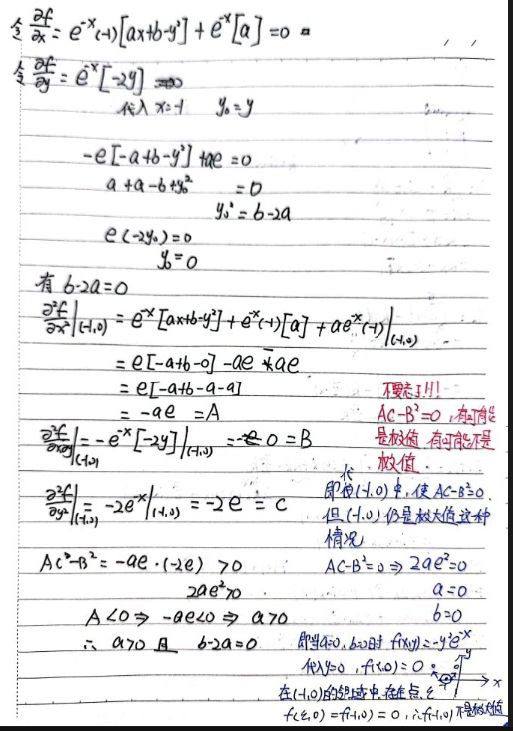 令 ∂f/∂x = e^-x(-1)[ax+b-y²] + e^-x[a] = 0
令 ∂f/∂y = e^-x[-2y] = 0
代入 x=-1 y₀=y
-e[-a+b-y²]+ae = 0
a+a-b+y₀² = 0
y₀² = b-2a
e(-2y₀)=0
y₀=0
有 b-2a=0
∂²f/∂x²|(-1,0) = e^-x[ax+b-y²]+e^-x(-1)[a]+ae^-x(-1)|(-1,0)
= e[-a+b-0]-ae-ae
= e[-a+b-a-a]
= -ae = A
∂²f/∂x∂y|(-1,0) = -e^-x[-2y]|(-1,0) = 0 = B
∂²f/∂y²|(-1,0) = -2e^-x|(-1,0) = -2e = C
AC-B² = -ae·(-2e) >0
2ae²>0
A<0 ⇒ -ae<0 ⇒ a>0
∴ a>0 且 b-2a=0
不要忘了!!!
AC-B²=0,有可能
是极值,有可能不是
极值
即代(-1,0)中,使AC-B²=0
但(-1,0)仍是极大值这种
情况
AC-B²=0 ⇒ 2ae²=0
a=0
b=0
即当a=0,b=0时 f(x,y)=-y²e^-x
代入y=0,f(x,0)=0
在(-1,0)的邻域中,存在点,ξ
f(ξ,0)=f(-1,0)=0,∴f(-1,0)不是极大值
y
x